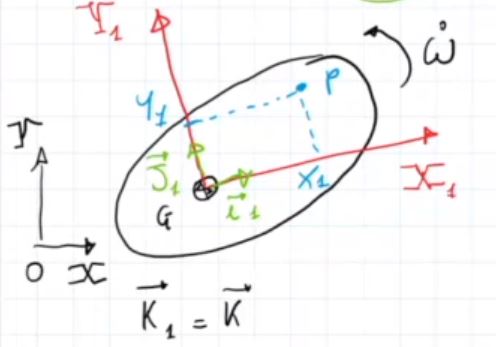 Y₁
ω̇
Y₁
P
Y
J⃗₁
X₁
X₁
G
i⃗₁
O X
K⃗₁ = K⃗